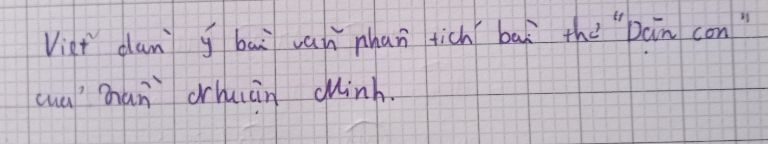 Viết dàn ý bài văn phân tích bài thơ "Dặn con"
của Trần Nhuận Minh.